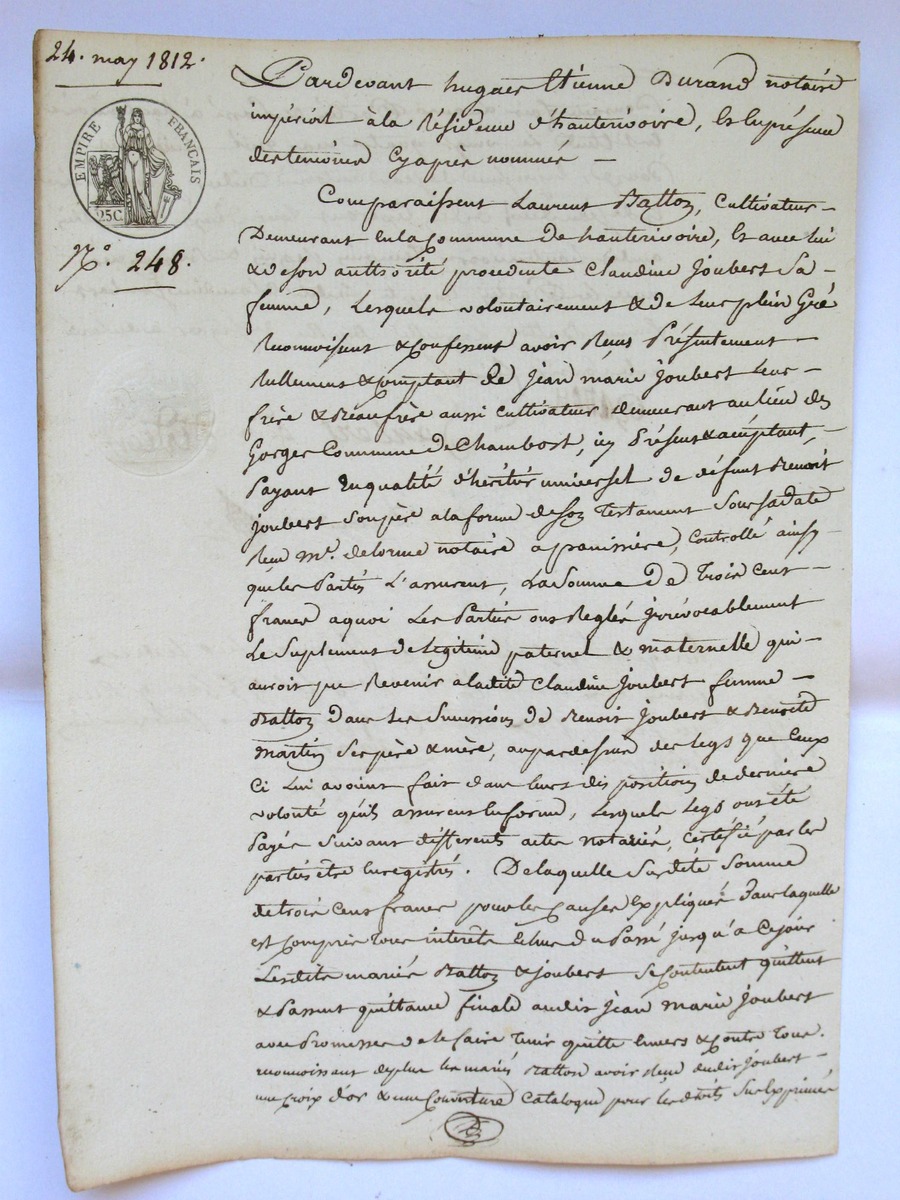 24. may 1812.
EMPIRE FRANÇAIS
25C.
N°. 248.
Pardevant hugues Etienne Durand notaire
impérial à la Résidence d'hauterivoire, & en présence
des temoins cy après nommés —
Comparaissent Laurent Batton, Cultivateur
Demeurant en la Commune de hauterivoire, & avec lui
& de son authorité procedente Claudine Joubert Sa
femme, Lesquels volontairement & de leur plein Gré
Reconnoissent & Confessent avoir Reçus Présentement
Rellement & Comptant de Jean marie Joubert leur
frère & Beaufrère aussi cultivateur demeurant au lieu des
Gorges Commune de Chambost, icy Présent & acceptant,
Payant En qualité d'héritier universel de défunt Benoit
Joubert Son père a la forme de son Testament Sous Sa date
Reçu Me. delorme notaire a panissière, Controllé ainsy
que les Parties L'assurent, La Somme de Trois Cent
francs a quoi Les Parties ont Reglés irrévocablement
Le Suplement de Légitime paternel & maternelle qui
auroit pu Revenir a ladite Claudine Joubert femme
Batton dans les Successions de Benoit Joubert & Benoite
Martin Ses père & mère, au par dessus des legs que Ceux
Ci Lui avoient fait dans leurs dispositions de dernière
volonté qu'ils assurent en forme, Lesquels Legs ont été
Payés Suivant différents actes notariés, Certifié par les
parties être Enregistrés. De laquelle Susdite Somme
de trois Cent francs pour les Causes Expliquées dans laquelle
est Compris Tous interets Echus du Passé jusqu'à Ce jour
Lesdits mariés Batton & Joubert Se Contentent quittent
& Passent quittance finale audit Jean Marie Joubert
avec Promesses de le faire Tenir quitte Envers & Contre Tous.
reconnoissant de plus les mariés Batton avoir Reçu dudit Joubert
une Croix d'or & une Couverture Catalogne pour les droits Sus Exprimés